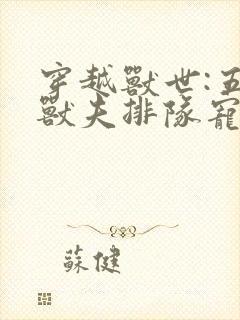 穿越獸世:五
獸夫排隊寵
蘇健